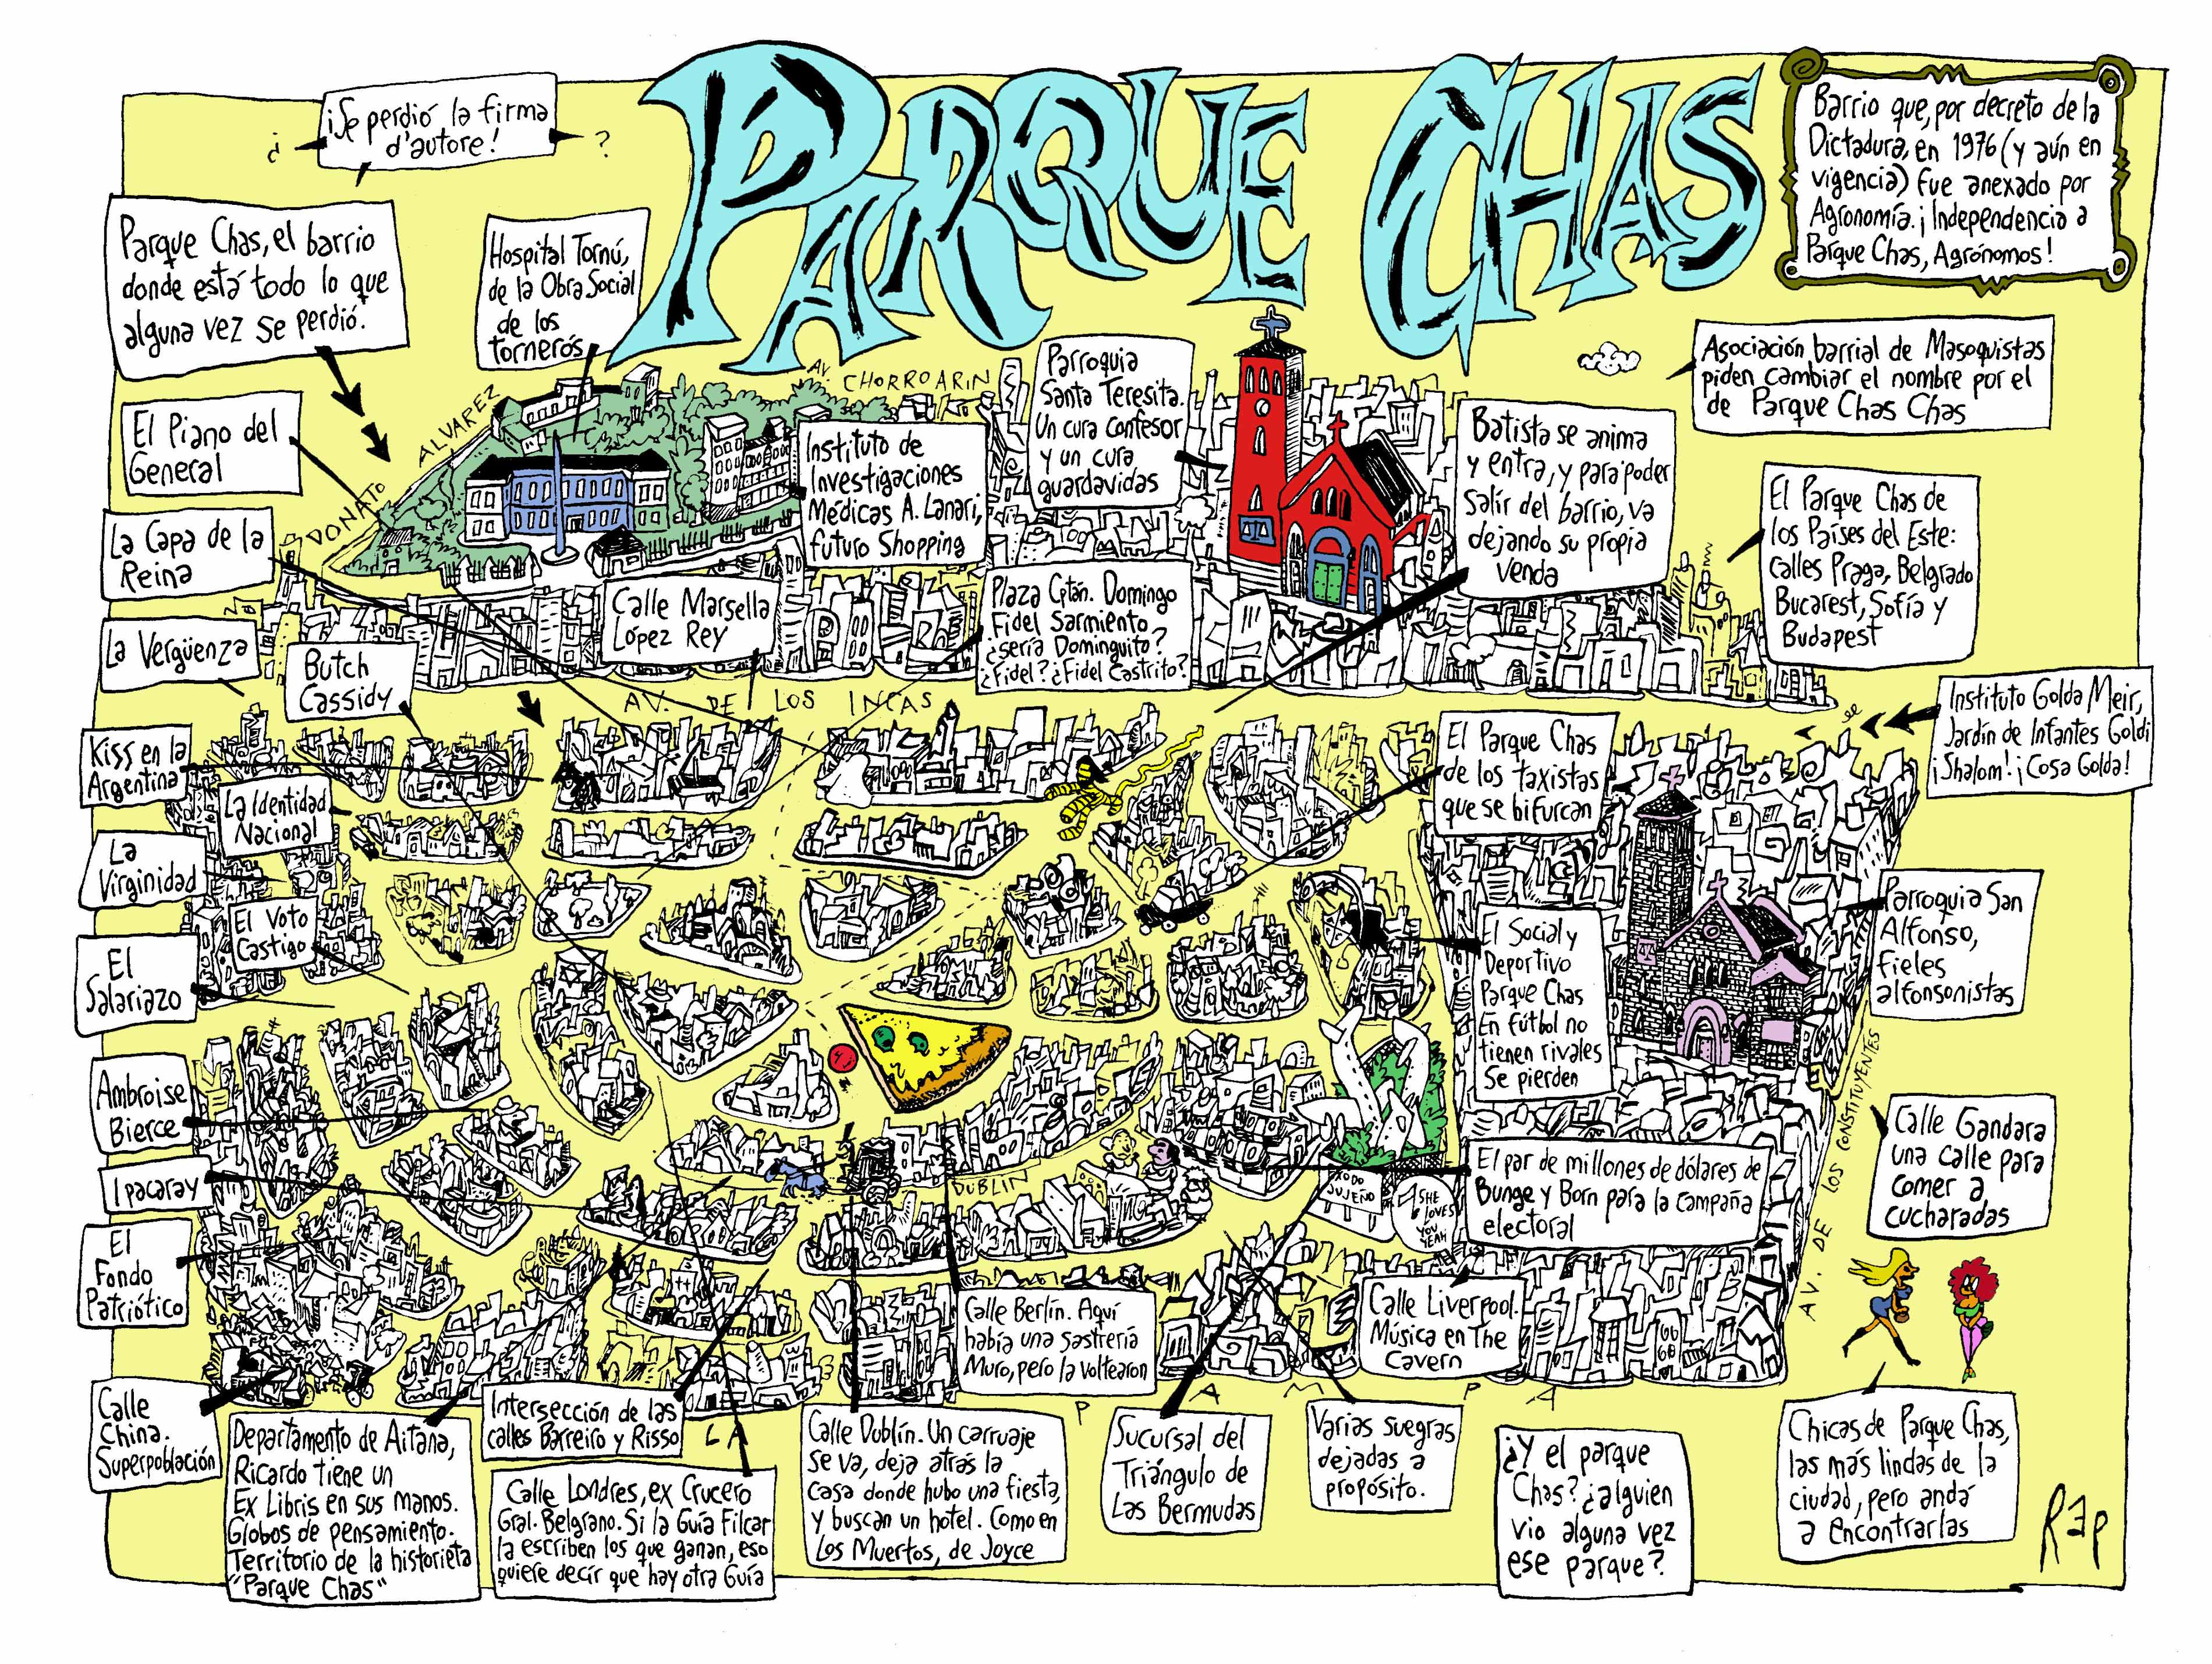 PARQUE CHAS
¿
¡Se perdió la firma
d'autore!
?
Barrio que, por decreto de la
Dictadura, en 1976 (y aún en
vigencia) fue anexado por
Agronomía. ¡Independencia a
Parque Chas, Agrónomos!
Parque Chas, el barrio
donde está todo lo que
alguna vez se perdió.
Hospital Tornú,
de la Obra Social
de los
tornerós
DONATO ALVAREZ
AV. CHORROARIN
Parroquia
Santa Teresita.
Un cura confesor
y un cura
guardavidas
Asociación barrial de Masoquistas
piden cambiar el nombre por el
de Parque Chas Chas
El Piano del
General
Instituto de
Investigaciones
Médicas A. Lanari,
futuro Shopping
Batista se anima
y entra, y para poder
salir del barrio, va
dejando su propia
venda
El Parque Chas de
los Países del Este:
calles Praga, Belgrado
Bucarest, Sofía y
Budapest
La Capa de la
Reina
Calle Marsella
López Rey
Plaza Cptán. Domingo
Fidel Sarmiento
¿sería Dominguito?
¿Fidel? ¿Fidel Castrito?
La Vergüenza
Butch
Cassidy
AV. DE LOS INCAS
Instituto Golda Meir,
Jardín de Infantes Goldi
¡Shalom! ¡Cosa Golda!
Kiss en la
Argentina
La Identidad
Nacional
El Parque Chas
de los taxistas
que se bifurcan
La
Virginidad
El Voto
Castigo
El Social y
Deportivo
Parque Chas
En fútbol no
tienen rivales
Se pierden
Parroquia San
Alfonso,
fieles
alfonsonistas
El
Salariazo
AV. DE LOS CONSTITUYENTES
Ambroise
Bierce
Calle Gandara
una calle para
comer a
cucharadas
Ipacaray
DUBLIN
EXODO
JUJEÑO
SHE
LOVES
YOU
YEAH
El par de millones de dólares de
Bunge y Born para la campaña
electoral
El
Fondo
Patriótico
Calle Berlín. Aquí
había una sastrería
Muro, pero la voltearon
Calle Liverpool.
Música en The
Cavern
Calle
China.
Superpoblación
Departamento de Aitana,
Ricardo tiene un
Ex Libris en sus manos.
Globos de pensamiento.
Territorio de la historieta
"Parque Chas"
Intersección de las
calles Barreiro y Risso
LA PAMPA
Calle Londres, ex Crucero
Gral. Belgrano. Si la Guía Filcar
la escriben los que ganan, eso
quiere decir que hay otra Guía
Calle Dublín. Un carruaje
se va, deja atrás la
casa donde hubo una fiesta,
y buscan un hotel. Como en
Los Muertos, de Joyce
Sucursal del
Triángulo de
Las Bermudas
Varias suegras
dejadas a
propósito.
¿Y el parque
Chas? ¿alguien
vio alguna vez
ese parque?
Chicas de Parque Chas,
las más lindas de la
ciudad, pero andá
a encontrarlas
REP